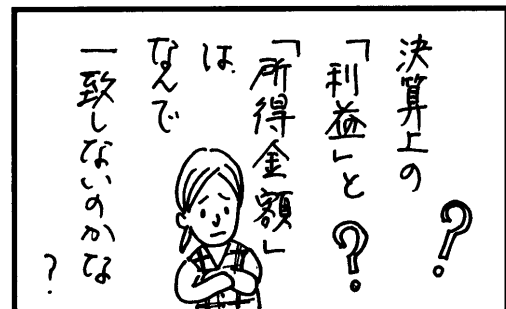 決算上の
「利益」と
「所得金額」
は、
なんで
一致しないのかな
?
?
?